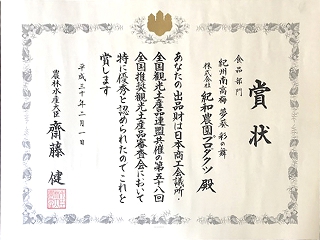 賞状
食品部門
紀州南高梅 夢葵 彩の舞
株式会社 紀和農園プロダクツ 殿
あなたの出品財は日本商工会議所・
全国観光土産品連盟共催の第五十八回
全国推奨観光土産品審査会において
特に優秀と認められたのでこれを
賞します
平成三十年二月一日
農林水産大臣 齋藤 健